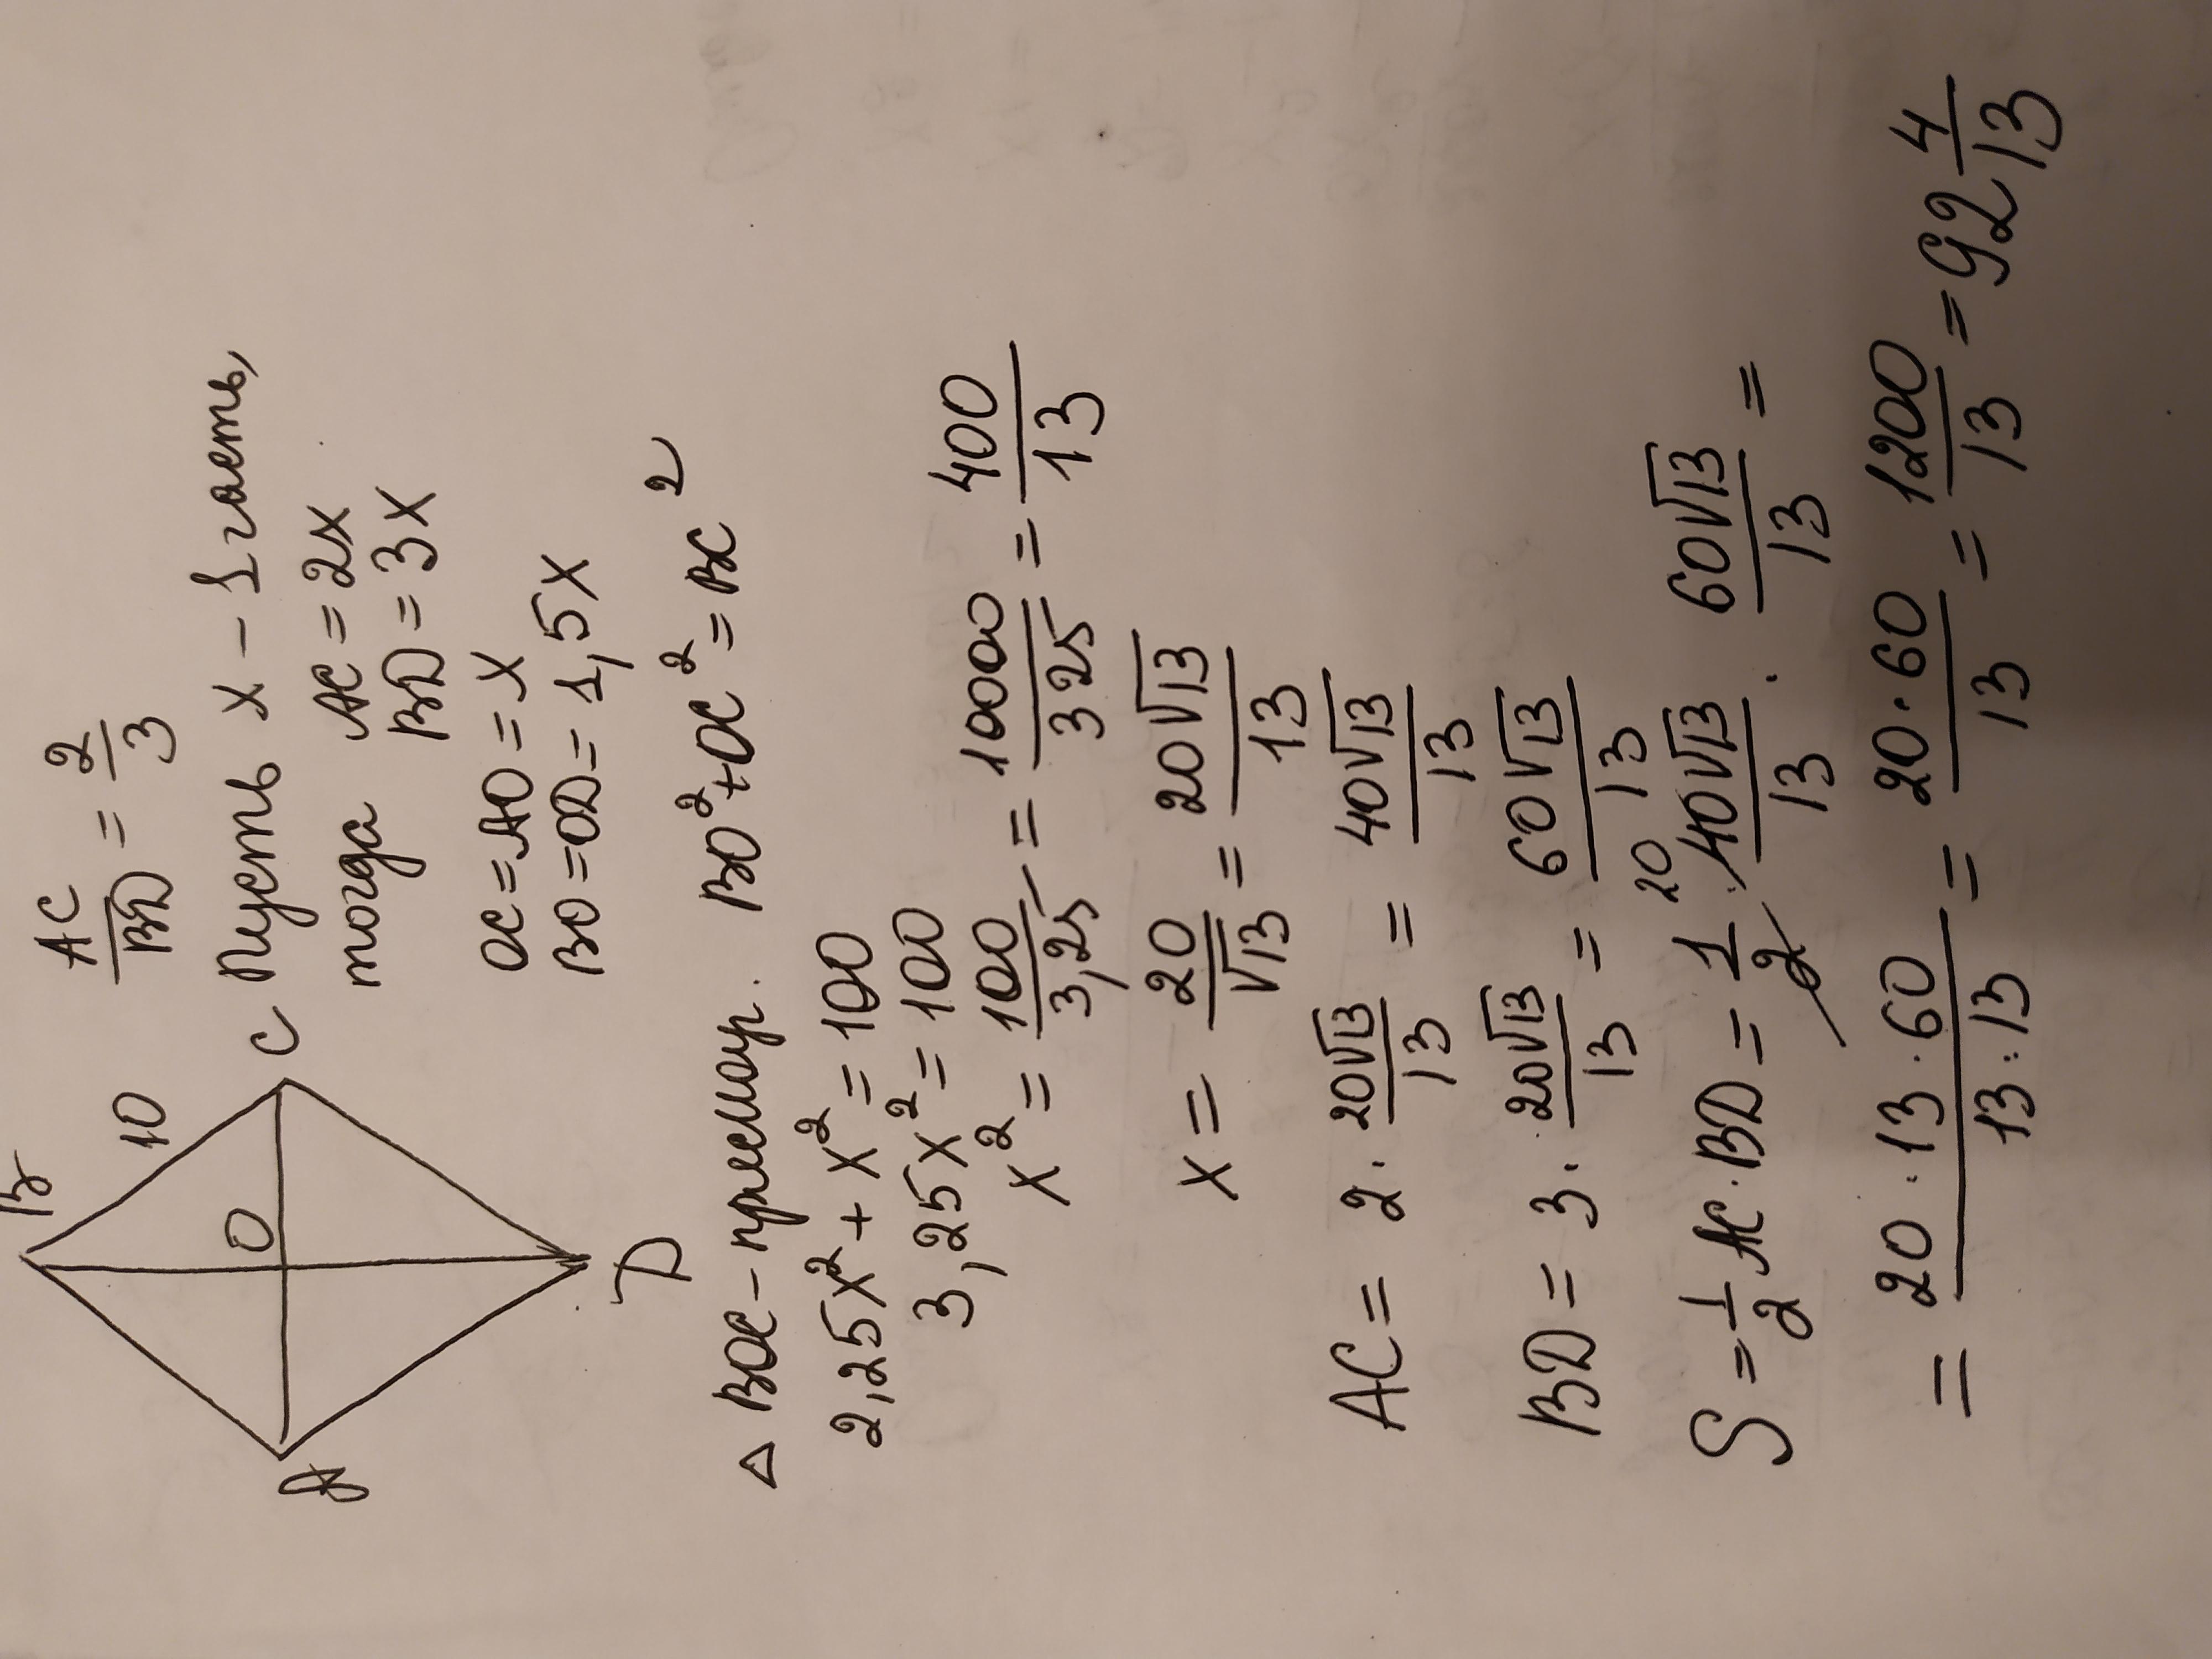 B
10
C
O
A
D
AC/BD = 2/3
Пусть x - 1 часть,
тогда AC = 2x
BD = 3x
OC = AO = x
BO = OD = 1,5x
△ BOC - прямоуг. BO² + OC² = BC²
2,25x² + x² = 100
3,25x² = 100
x² = 100/3,25 = 10000/325 = 400/13
x = 20/√13 = 20√13/13
AC = 2 · 20√13/13 = 40√13/13
BD = 3 · 20√13/13 = 60√13/13
20
S = 1/2 AC · BD = 1/2 · 40√13/13 · 60√13/13 =
= 20 · 13 · 60/13 · 13 = 20 · 60/13 = 1200/13 = 92 4/13